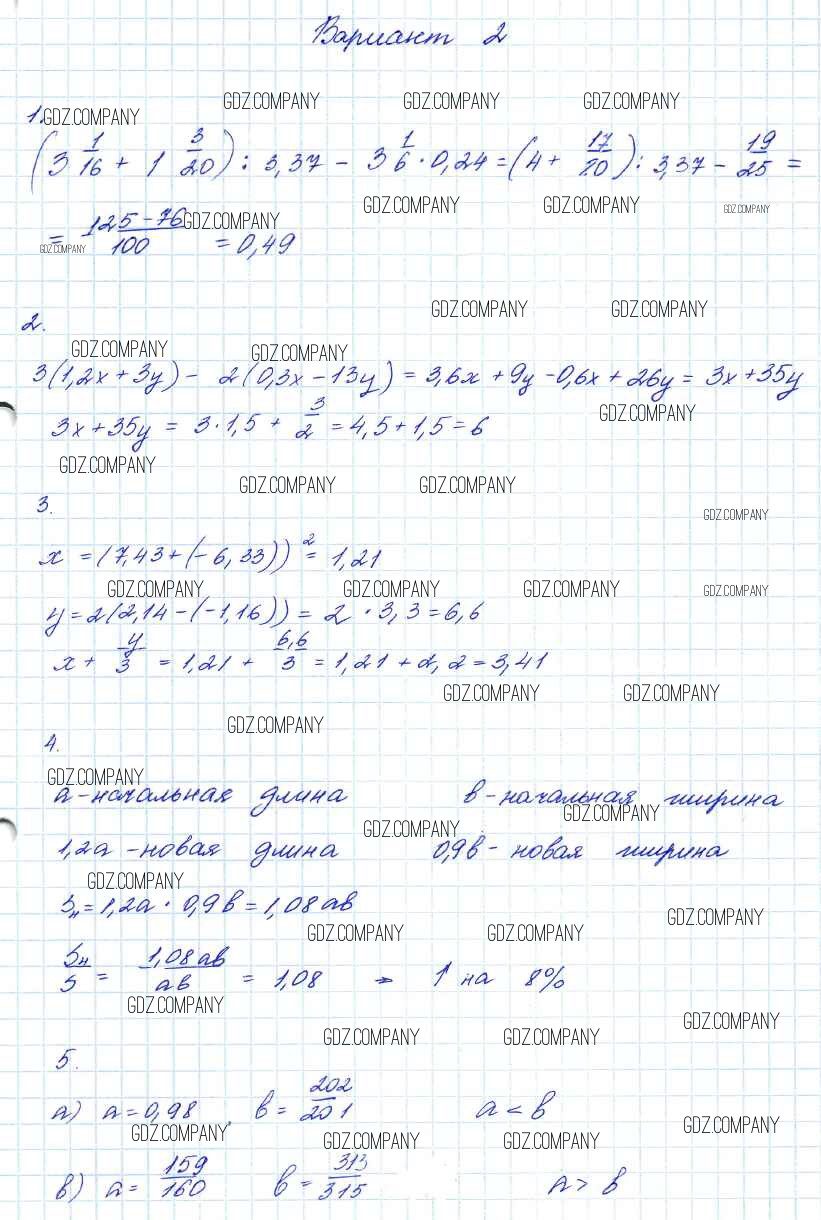 Вариант 2
GDZ.COMPANY GDZ.COMPANY GDZ.COMPANY
1. GDZ.COMPANY
(3 1/16 + 1 3/20) : 3,37 - 3 1/6 · 0,24 = (4 + 17/80) : 3,37 - 19/25 =
GDZ.COMPANY GDZ.COMPANY GDZ.COMPANY
= (125-76)/100 = 0,49
GDZ.COMPANY GDZ.COMPANY
GDZ.COMPANY GDZ.COMPANY
2.
GDZ.COMPANY GDZ.COMPANY
3(1,2x + 3y) - 2(0,3x - 13y) = 3,6x + 9y - 0,6x + 26y = 3x + 35y
GDZ.COMPANY
3x + 35y = 3·1,5 + 3/2 = 4,5 + 1,5 = 6
GDZ.COMPANY GDZ.COMPANY GDZ.COMPANY
3.
GDZ.COMPANY
x = (7,43 + (-6,33))² = 1,21
GDZ.COMPANY GDZ.COMPANY GDZ.COMPANY GDZ.COMPANY
y = 2(2,14 - (-1,16)) = 2 · 3,3 = 6,6
x + y/3 = 1,21 + 6,6/3 = 1,21 + 2,2 = 3,41
GDZ.COMPANY GDZ.COMPANY
GDZ.COMPANY
4.
GDZ.COMPANY
a - начальная длина в - начальная ширина
GDZ.COMPANY
GDZ.COMPANY
1,2a - новая длина 0,9в - новая ширина
GDZ.COMPANY
Sн = 1,2a · 0,9в = 1,08 ав
GDZ.COMPANY
GDZ.COMPANY GDZ.COMPANY
Sн/S = 1,08 ав/ав = 1,08 → ↑ на 8%
GDZ.COMPANY
GDZ.COMPANY GDZ.COMPANY GDZ.COMPANY
5.
а) a = 0,98, в = 202/201 a < в
GDZ.COMPANY GDZ.COMPANY GDZ.COMPANY GDZ.COMPANY
в) a = 159/160 в = 313/315 a > в